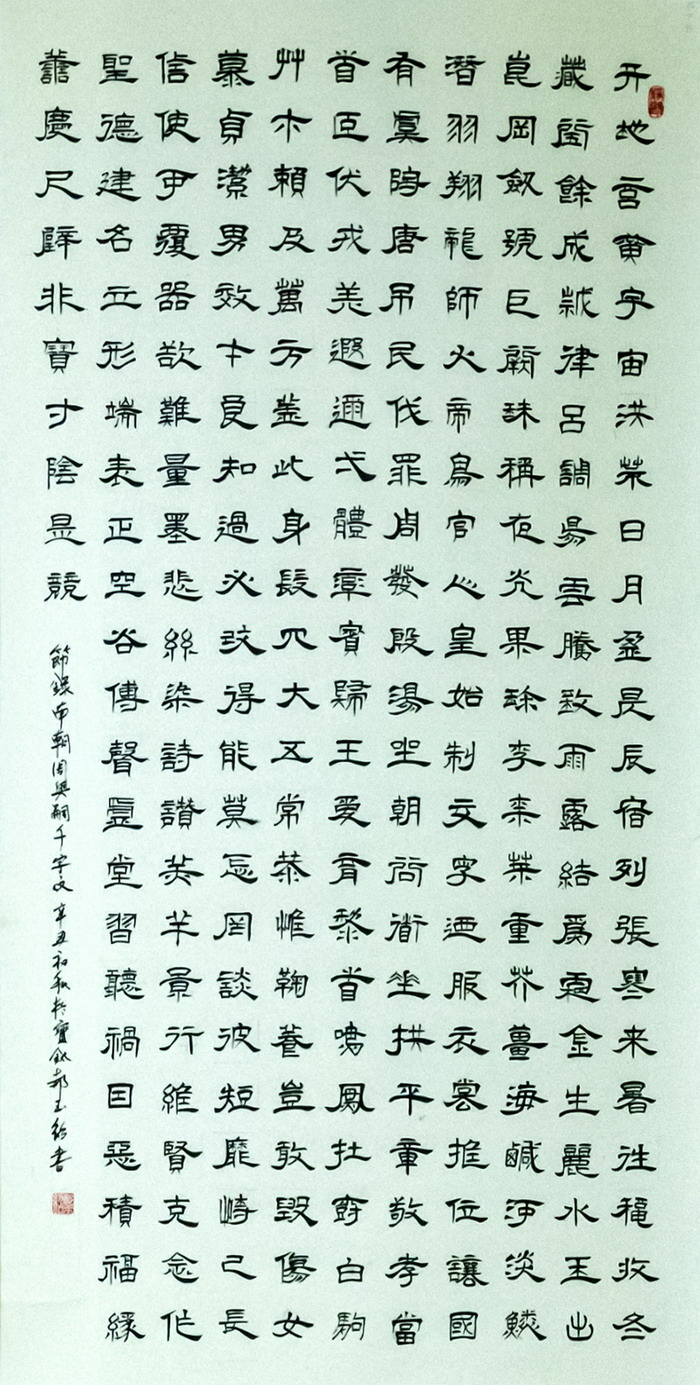 天地玄黄宇宙洪荒日月盈昃辰宿列張寒来暑往穐收冬
藏閏餘成歲律呂調陽雲騰致雨露結爲霜金生麗水玉出
崑岡劍號巨闕珠稱夜光果珍李柰菜重芥薑海鹹河淡鱗
潛羽翔龍師火帝鳥官人皇始制文字迺服衣裳推位讓國
有虞陶唐弔民伐罪周發殷湯坐朝問道垂拱平章敬孝當
首臣伏戎羌遐邇弌體率賓歸王愛育黎首鳴鳳在樹白駒
艸木賴及萬方蓋此身髮四大五常恭惟鞠養豈敢毀傷女
慕貞潔男效才良知過必改得能莫忘罔談彼短靡恃己長
信使可覆器欲難量墨悲絲染詩讃羔羊景行維賢克念作
聖德建名立形端表正空谷傳聲虛堂習聽禍因惡積福緣
善慶尺璧非寶寸陰是競
節録南朝周興嗣千字文 辛丑初秋於寶郝玉書